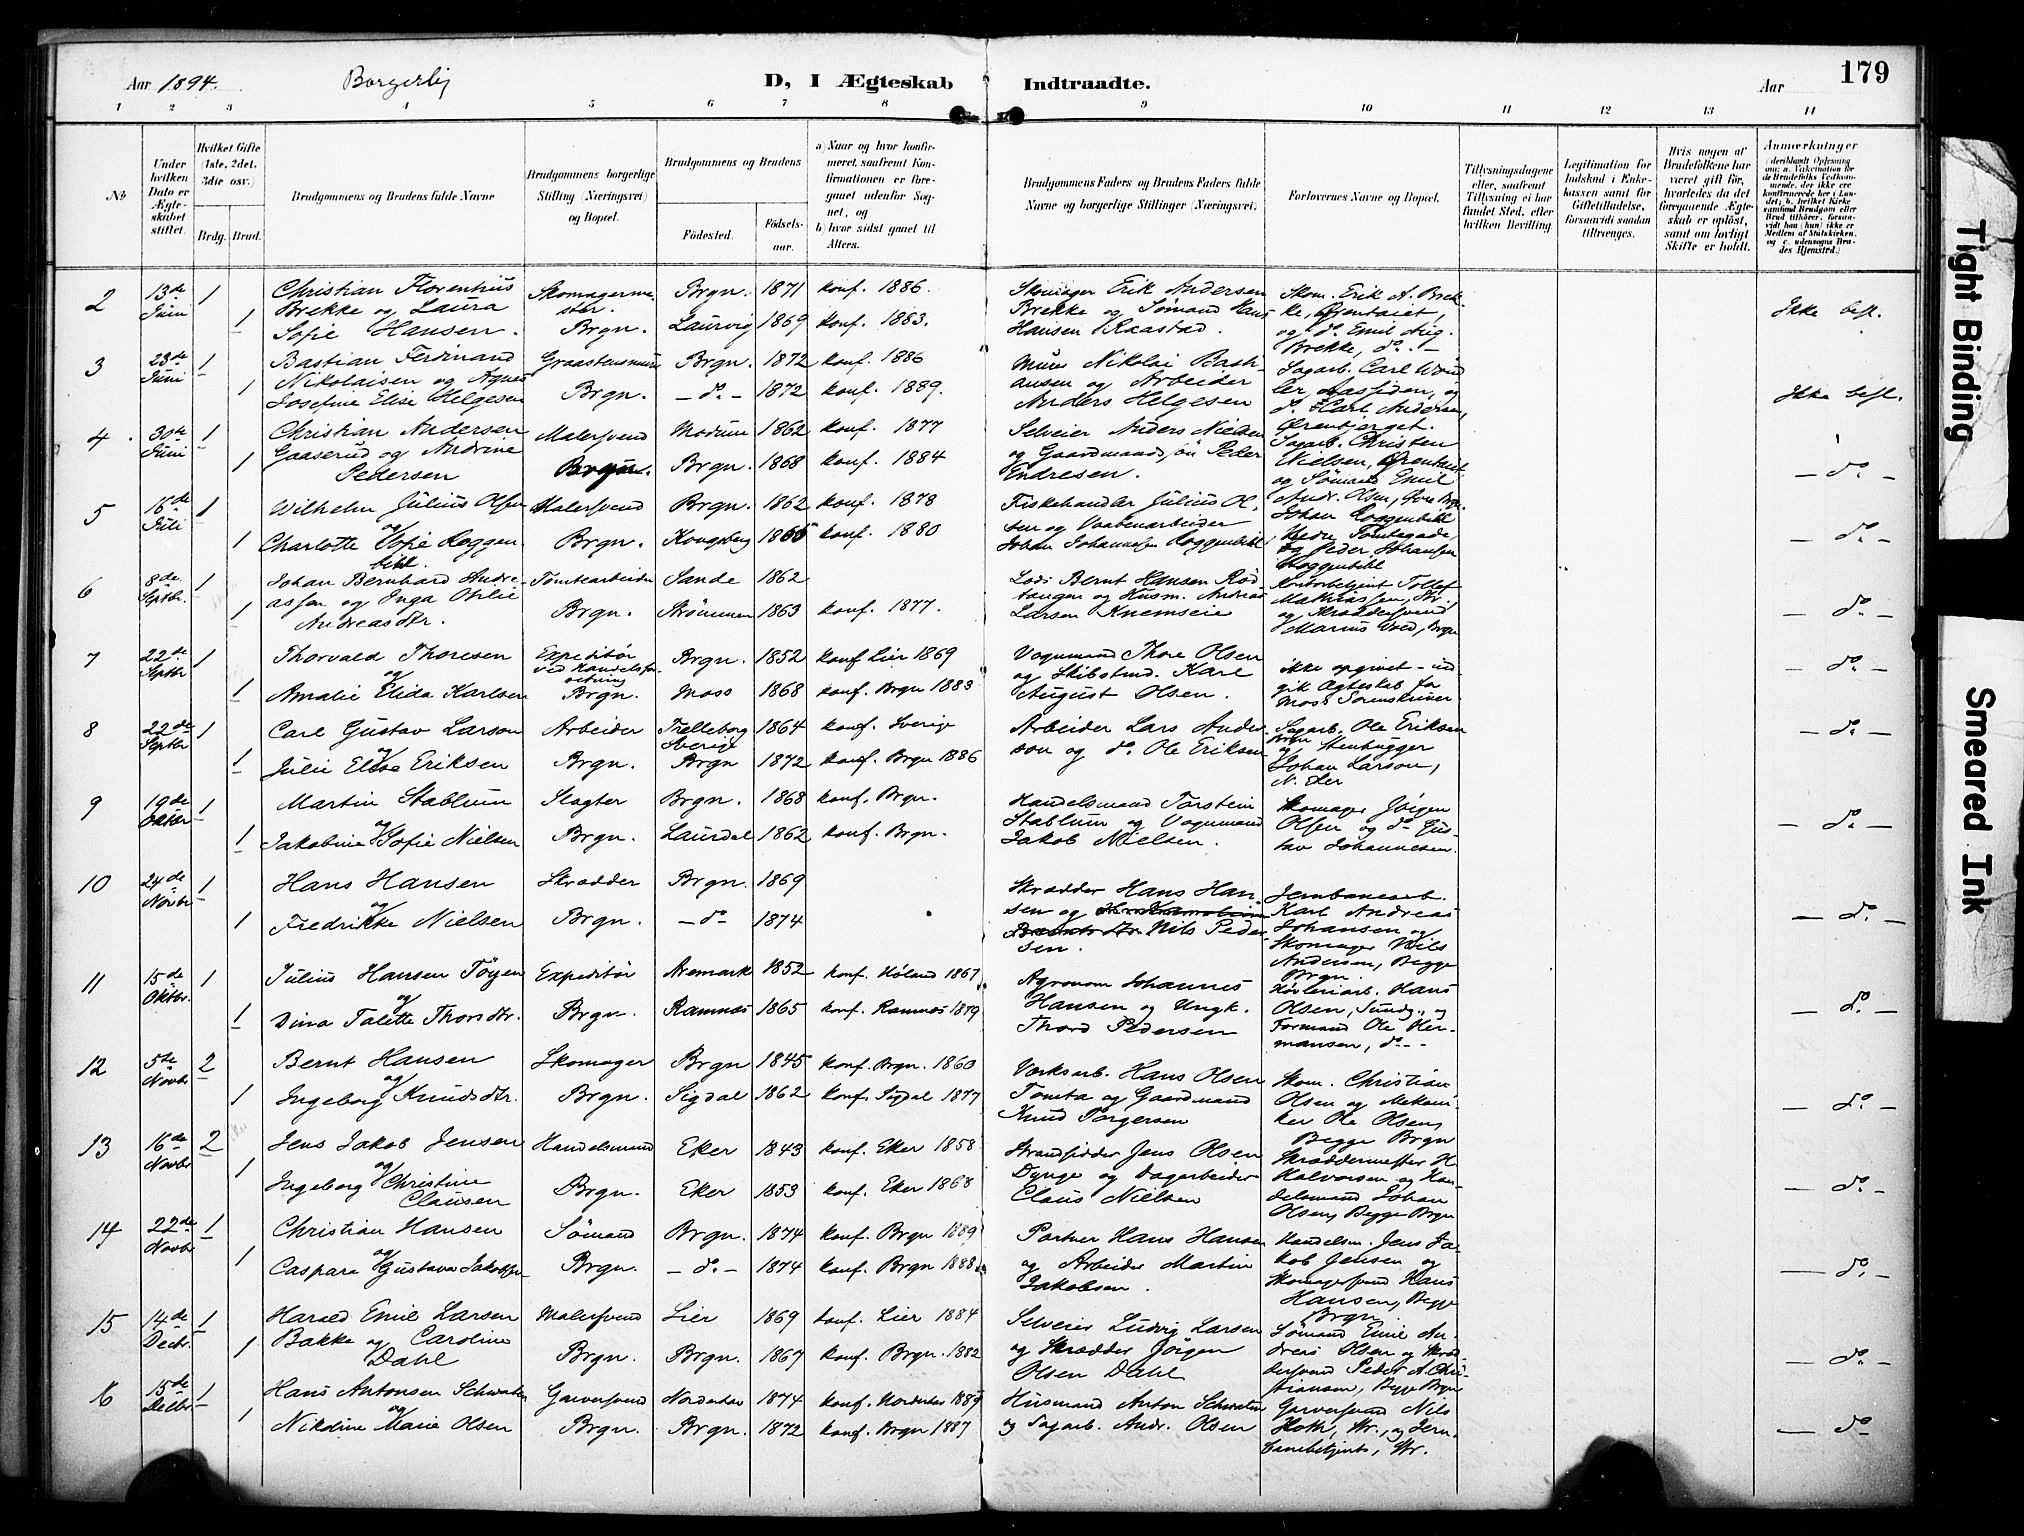 Aar 1894. Borgerlig D, I Ægteskab Indtraadte. Aar 179
1 2 3 4 5 6 7 8 9 10 11 12 13 14
No
Under hvilken Dato er Ægteskabet stiftet.
Hvilket Gifte (1ste, 2det, 3die osv.)
Brdg. Brud.
Brudgommens og Brudens fulde Navne
Brudgommens borgerlige Stilling (Næringsvei) og Bopæl.
Brudgommens og Brudens
Fødested.
Fødselsaar.
a) Naar og hvor konfirmeret, saafremt Konfirmationen er foregaaet udenfor Sognet, og
b) hvor sidst gaaet til Alters.
Brudgommens Faders og Brudens Faders fulde Navne og borgerlige Stillinger (Næringsvei)
Forlovernes Navne og Bopæl.
Tillysningsdagene eller, saafremt Tillysning ei har fundet Sted, efter hvilken Bevilling.
Legitimation for Indskud i Enkekassen samt for Giftetilladelse, forsaavidt saadan tiltrænges.
Hvis nogen af Brudefolkene har været gift før, hvorledes da det foregaaende Ægteskab er opløst, samt om lovligt Skifte er holdt.
Anmærkninger
2 13de Juni 1 Christian Florentius Skomagerme- Brgn. 1871 konf. 1886. Skomager Erik Andersen Skom. Erik A. Brek-
Brekke og Laura ster. Brekke og Sømand Hans ke, Ørentaiet, Ikke befl.
1 Sofie Hansen. Brgn. Laurvig 1869 konf. 1883. Hansen Raastad. og do. Emil Aug.
Brekke, do. -
3 23de Juni 1 Bastian Ferdinand Brgn. 1872 konf. 1886 Murer Nikolai Basti-
1 Nikolaisen og Agnes Brgn. - do. - 1872 konf. 1889. ansen og Arbeider
Josefine Elise Helgesen Anders Helgesen Ikke befl.
4 30te Juni 1 Christian Andersen Malersvend Modum 1862 konf. 1877 Selveier Anders Nielsen Sagarb. Christen
Gaaserud og Andrine og Gaardmandssøn Peder Nielsen,
1 Pedersen Brgn. Brgn. 1868 konf. 1884 Endresen. og Sømand Emil - do. -
5 16de Juli 1 Wilhelm Julius Olsen Malersvend Brgn. 1862 konf. 1878 Fiskehandler Julius Ol- Andr. Olsen,
1 og Charlotte Sofie Roggen- Brgn. Kongsberg konf. 1880 sen og Vaabenarbeider - do. -
bikl. Johan Johannesen og Peder Johansen
6 8de Septbr. 1 Johan Bernhard Andre- Sande 1862 Lods Bernt Hansen Rød-
assen og Inga Otilie tangen og Husm. Andreas Mathiassen, Str.
1 Andreasdtr. Brgn. Strømmen 1863 konf. 1877. Larsen Knemseie og Skræddersvend - do. -
7 22de Septbr 1 Thorvald Thoresen Expeditør Brgn. 1852 konf Lier 1869 Vognmand Thore Olsen ikke opgivet - ind-
og Karl gik Ægteskab for
1 Amalie Elida Karlsen Brgn. Moss 1868 konf. Brgn 1883 August Olsen. Moss Sorenskriver - do. -
8 22de Septbr 1 Carl Gustav Larson Arbeider Trelleborg Sverige 1864 konf. Sverige Arbeider Lars Ander- Sagarb. Ole Eriksen
1 og Julie Elise Eriksen Brgn. Brgn 1872 konf. Brgn 1886 son og do. Ole Eriksen og Stenhugger - do. -
Johan Larson,
9 19de Oktbr 1 Martin Stablum Slagter Brgn. 1868 konf. Brgn. Handelsmand Torstein Skomager Jørgen
1 og Jakobine Sofie Nielsen Brgn. Laurdal 1862 konf. Brgn. Stablum og Vognmand Olsen og do. Gus-
Jakob Nielsen. tav Johannesen. - do. -
10 24de Novbr 1 Hans Hansen Skrædder Brgn. 1869 Skrædder Hans Han- Jernbanearb.
1 og Fredrikke Nielsen Brgn. - do. 1874 sen og Karl Andreas - do. -
Nils Peder- Johansen og
sen. Skomager Nils
Andersen, Begge
Brgn.
11 15de Oktbr. 1 Julius Hansen Töyen Expeditør Aremark 1852 konf. Høland 1867 Agronom Johannes Høvleriarb. Hans
1 og Dina Talette Thorsdtr. Brgn. Ramnæs 1865 konf. Ramnæs 1879 Hansen og Ungk. Olsen, Sundg., og
Thord Pedersen Formand Ole Her- - do. -
mansen, do. -
12 5te Novbr 2 Bernt Hansen Skomager Brgn 1845 konf. Brgn. 1860 Værksarb. Hans Olsen Skom. Christian
1 og Ingeborg Knudsdtr. Brgn. Sigdal 1862 konf. Sigdal 1877 Tomta og Gaardmand Olsen og Mekani-
Knud Torgersen ker Ole Olsen, - do. -
Begge Brgn
13 16de Novbr 2 Jens Jakob Jensen Handelsmand Eker 1843 konf. Eker 1858 Strandsidder Jens Olsen Skræddermester H.
1 og Ingeborg Christine Brgn. Eker 1853 konf. Eker 1868 Dynge og Dagarbeider Halvorsen og Han-
Clausen Claus Nielsen delsmand Johan - do. -
Olsen, Begge Brgn
14 22de Novbr 1 Christian Hansen Sømand Brgn. 1874 konf. Brgn 1889 Portner Hans Hansen Handelsm. Jens Ja-
1 og Caspara Gustava Jakobsen Brgn. - do. - 1874 konf. Brgn 1888 og Arbeider Martin kob Jensen og
Jakobsen. Skomagersvend Hans - do. -
Hansen, Begge
Brgn.
15 14de Decbr. 1 Harald Emil Larsen Malersvend Lier 1869 konf. Lier 1884 Selveier Ludvig Larsen Sømand Emil An-
1 Bakke og Caroline og Skrædder Jörgen dreas Olsen og Skræd-
Dahl Brgn. Brgn. 1867 konf. Brgn. 1882 Olsen Dahl dersvend Peder A. Chri- - do. -
stiansen, Begge Brgn
16 15de Decbr 1 Hans Antonsen Garversvend 1874 konf. Husmand Anton Garversvend Nils
1 og Nikoline Marie Olsen Brgn. Brgn. 1872 konf. Brgn 1887 og Sagarb. Andr. Olsen Hoth, Str., og Jern- - do.
banebetjent, Str.
Tight Binding
Smeared Ink